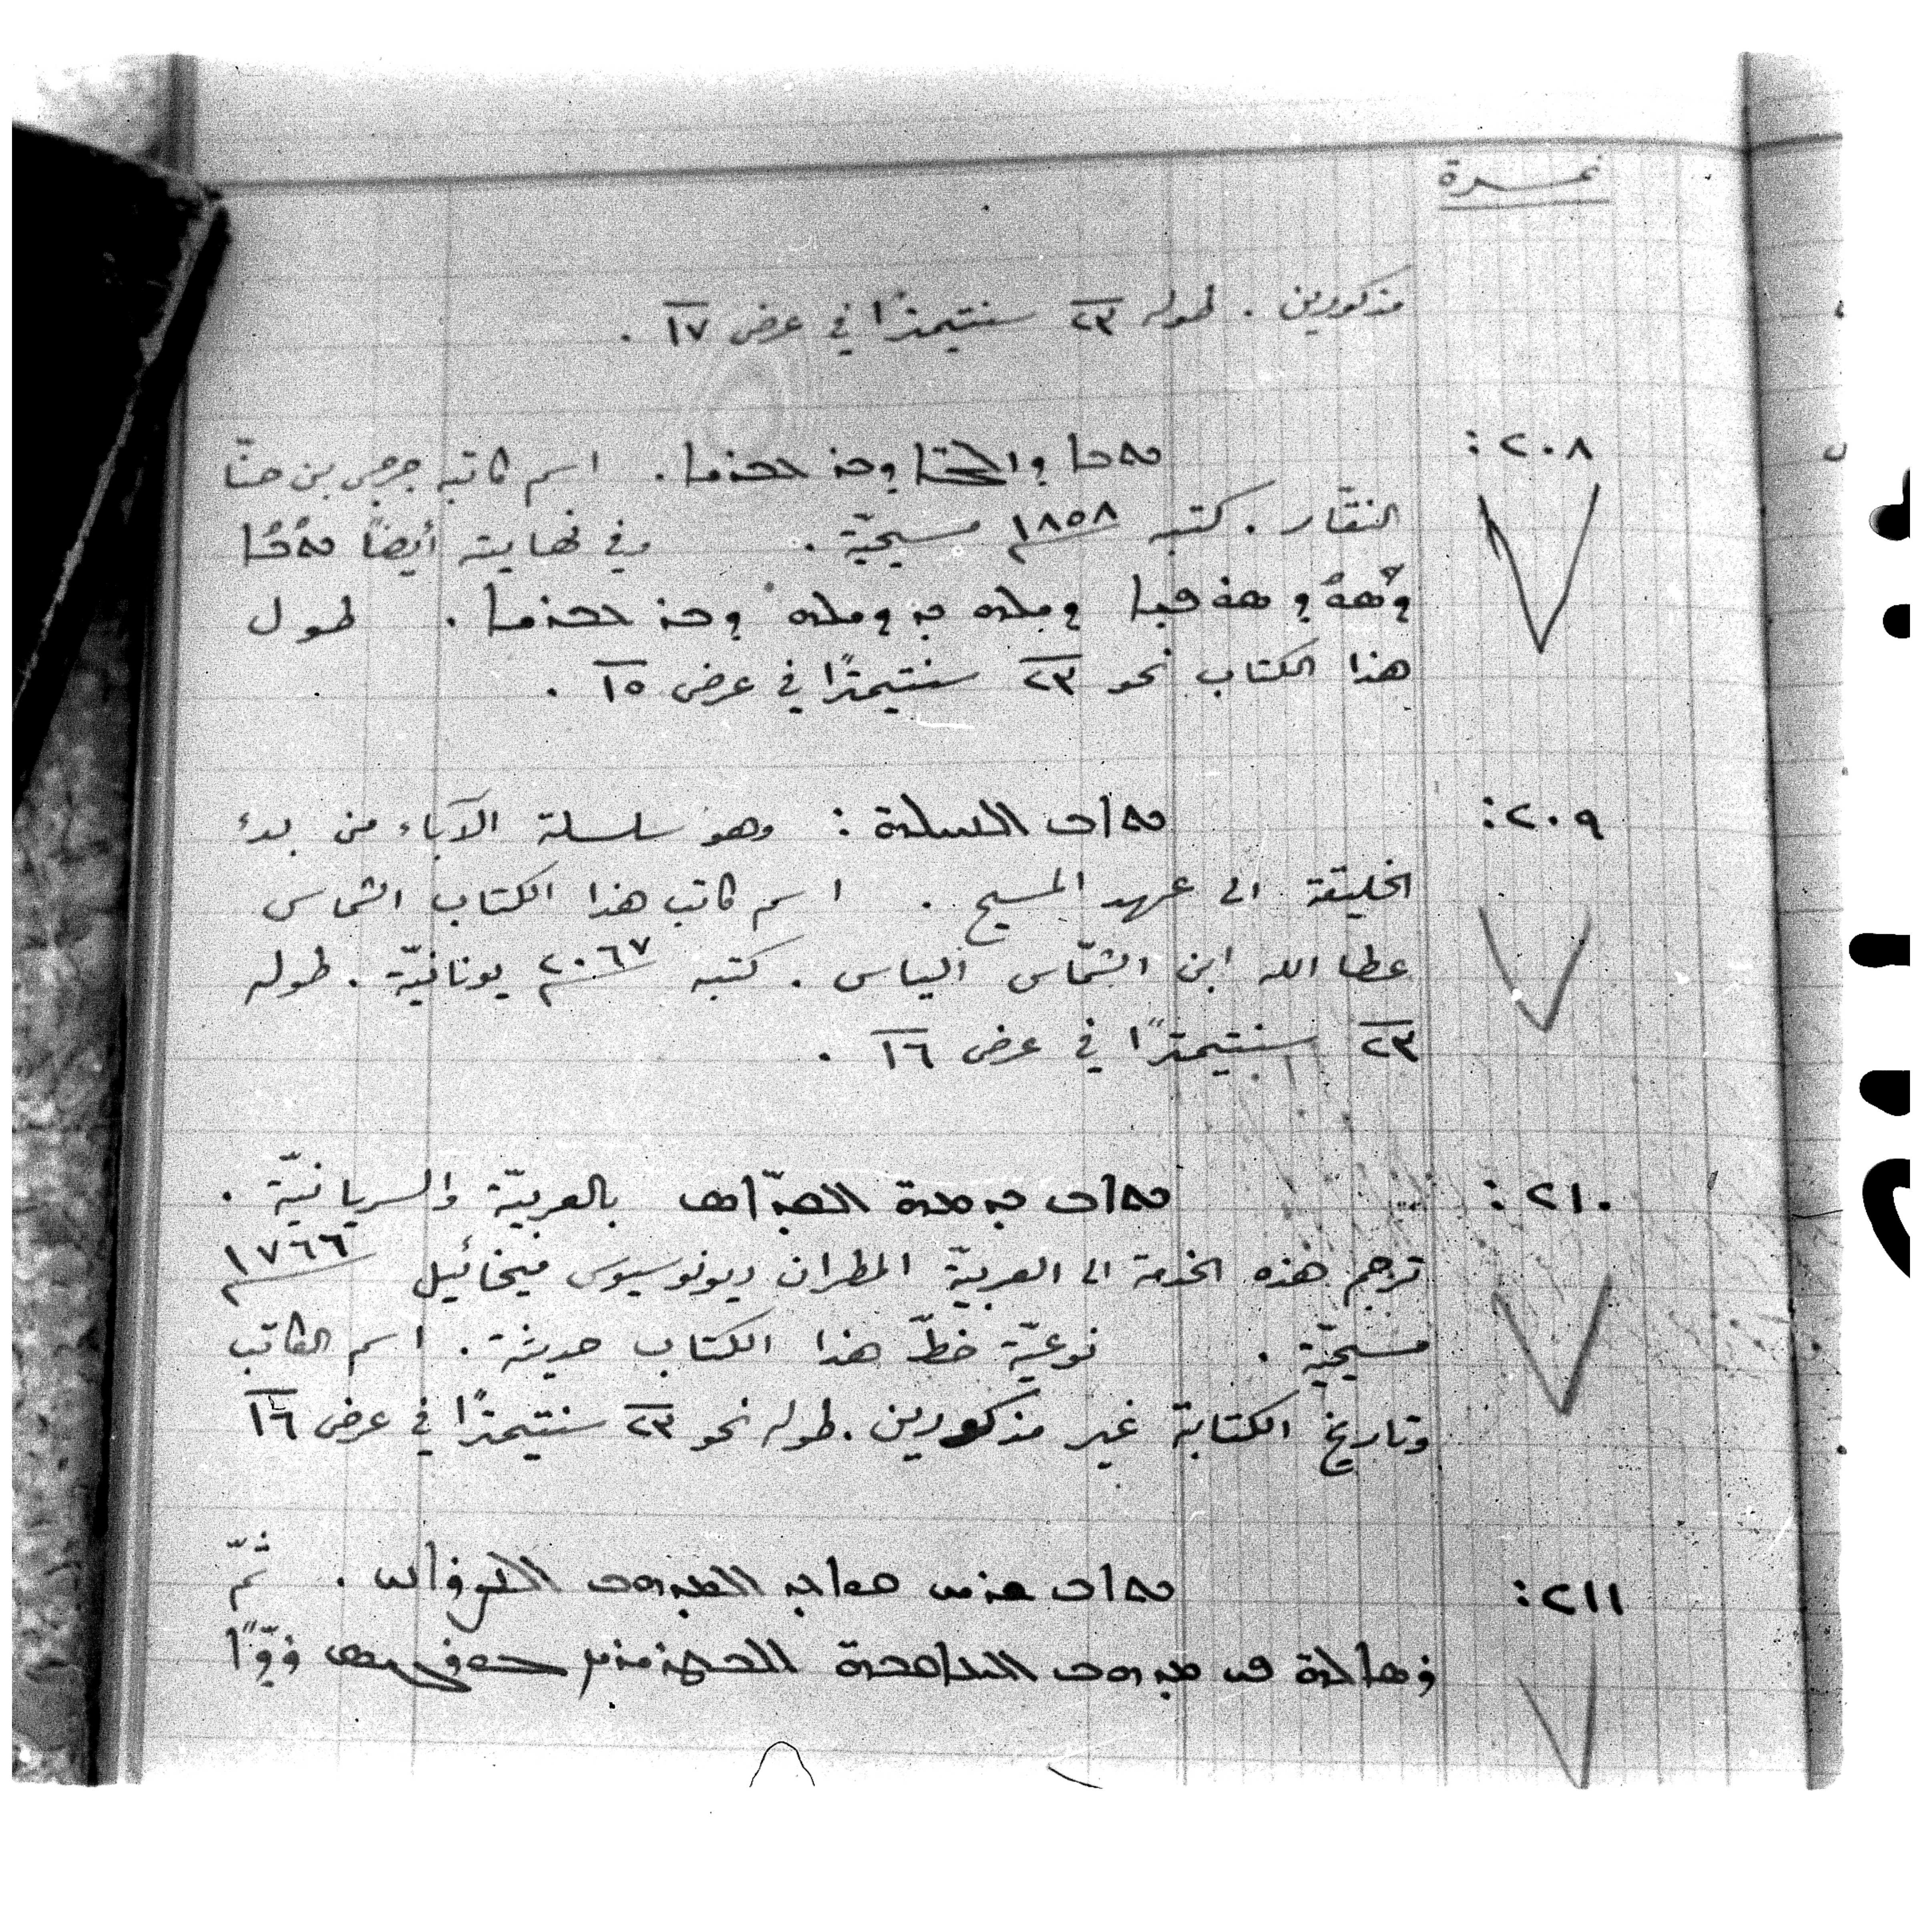 نمرة
مذكورين . طوله ٢٣ سنتيمترًا في عرض ١٧ .
٢٠٨ : ܟܬܒܐ ܕܐ̈ܓܪܬܐ ܕܒܪ ܥܒܪܝܐ . اسم كاتبه جرجس بن حنّا
النقّار . كتبه ١٨٥٨ مسيحيّة . وفي نهايته أيضًا ܟܬܒܐ
ܕܣܘܕ ܣܘܦܝܐ ܕܝܠܗ ܟܕ ܕܝܠܗ ܕܒܪ ܥܒܪܝܐ . طول
هذا الكتاب نحو ٢٣ سنتيمترًا في عرض ١٥ .
٢٠٩ : ܟܬܐܒ ܐܠܣܠܣܠܗ : وهو سلسلة الآباء من بدء
الخليقة الى عهد المسيح . اسم كاتب هذا الكتاب الشماس
عطا الله ابن الشمّاس الياس . كتبه ٢٠٦٧ يونانيّة . طوله
٢٣ سنتيمترًا في عرض ١٦ .
٢١٠ : ܟܬܐܒ ܟܕܡܗ ܐܠܩܕܐܣ بالعربيّة والسريانيّة .
ترجم هذه الخدمة الى العربيّة المطران ديونوسيوس ميخائيل ١٧٦٦
مسيحيّة . نوعيّة خطّ هذا الكتاب حديثة . اسم الكاتب
وتاريخ الكتابة غير مذكورين . طوله نحو ٢٣ سنتيمترًا في عرض ١٦
٢١١ : ܟܬܐܒ ܫܪܚ ܐܠܡܕܗܒ . ثمّ
ܪܣܐܠܗ ܦܝ ܡܕܗܒ ܪܕܐ